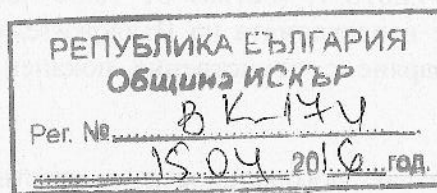 РЕПУБЛИКА БЪЛГАРИЯ
Община ИСКЪР
Рег. № ВК-174
15.04 2016 год.